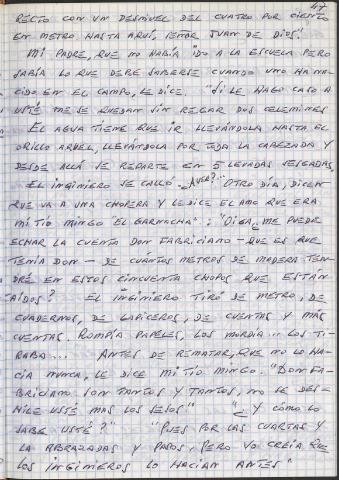 47
RECTO CON UN DESNIVEL DEL CUATRO POR CIENTO
EN METRO HASTA AQUÍ, SEÑOR JUAN DE DIOS".
MI PADRE, QUE NO HABÍA IDO A LA ESCUELA PERO
SABÍA LO QUE DEBE SABERSE CUANDO UNO HA NA-
CIDO EN EL CAMPO, LE DICE. "SI LE HAGO CASO A
USTÉ ME SE QUEDAN SIN REGAR DOS CELEMINES
EL AGUA TIENE QUE IR LLEVÁNDOLA HASTA EL
ORILLO AQUEL, LLEVÁNDOLA POR TODA LA CABEZADA Y
DESDE ALLÁ SE REPARTE EN 5 LEVADAS SESGADAS,
EL INGINIERO SE CALLÓ. ¿AVER?". OTRO DÍA, DICEN
QUE VA A UNA CHOPERA Y LE DICE EL AMO QUE ERA
MI TÍO MINGO "EL GARNACHA": "OIGA, ¿ME PUEDE
ECHAR LA CUENTA DON FABRICIANO - QUE ES QUE
TENÍA DON - DE CUANTOS METROS DE MADERA TEN-
DRÉ EN ESTOS CINCUENTA CHOPOS QUE ESTÁN
CAÍDOS? EL INGINIERO TIRÓ DE METRO, DE
CUADERNOS, DE LAPICEROS, DE CUENTAS Y MÁS
CUENTAS. ROMPÍA PAPELES, LOS MORDÍA... LOS TI-
RABA... ANTES DE REMATAR, QUE NO LO HA-
CÍA NUNCA, LE DICE MI TÍO MINGO. "DON FA-
BRICIANO SON TANTOS Y TANTOS, NO SE DES-
HILE USTÉ MAS LOS SESOS" "¿Y CÓMO LO
SABE USTÉ?" "PUES POR LAS CUARTAS Y
LA ABRAZADAS Y PASOS, PERO YO CREÍA QUE
LOS INGINIEROS LO HACÍAN ANTES"